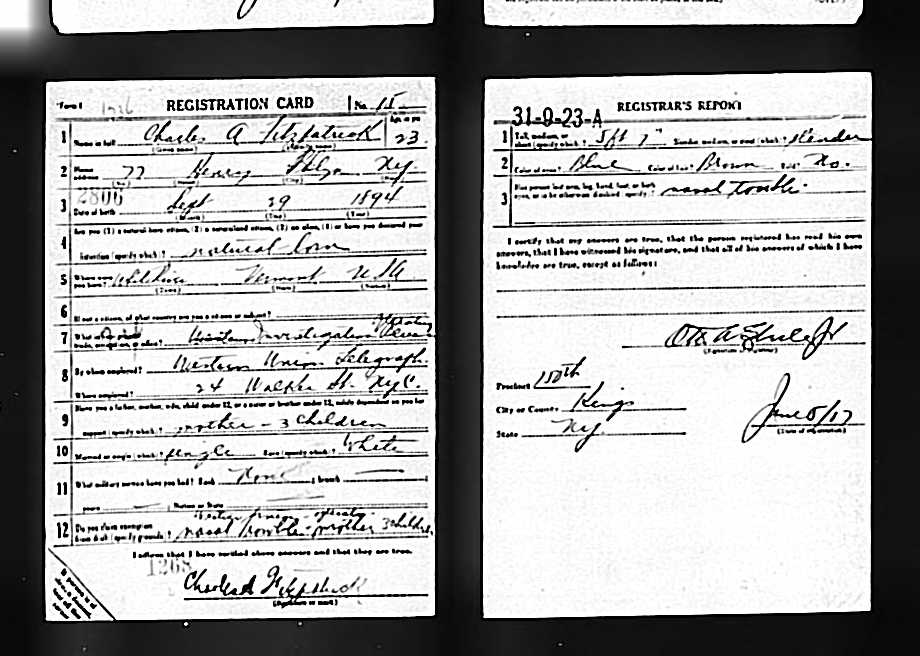 Form 1 REGISTRATION CARD No. 15
1 Name in full Charles A Fitzpatrick Age, in yrs 23
(Given name) (Family name)
2 Home address 77 Henry Bklyn NY.
(No.) (Street) (City) (State)
2806
3 Date of birth Sept 29 1894
(Month) (Day) (Year)
4 Are you (1) a natural born citizen, (2) a naturalized citizen, (3) an alien, (4) or have you declared your
intention (specify which)? natural born
5 Where were you born? Vermont USA
(Town) (State) (Nation)
6 If not a citizen, of what country are you a citizen or subject?
7 What is your present trade, occupation, or office?
8 By whom employed? Western Union Telegraph.
Where employed? 24 Walker St. NYC.
9 Have you a father, mother, wife, child under 12, or a sister or brother under 12, solely dependent on you for
support (specify which)? mother - 3 children
10 Married or single (which)? single Race (specify which)? White
11 What military service have you had? Rank None ; branch ;
years ; Nation or State
12 Do you claim exemption from draft (specify grounds)? nasal trouble - mother 3 children
I affirm that I have verified above answers and that they are true.
1268
Charles A Fitzpatrick
(Signature or mark)
31-9-23-A REGISTRAR'S REPORT
1 Tall, medium, or short (specify which)? 5ft 7" Slender, medium, or stout (which)? slender
2 Color of eyes? Blue Color of hair? Brown Bald? No.
3 Has person lost arm, leg, hand, foot, or both eyes, or is he otherwise disabled (specify)? nasal trouble.
I certify that my answers are true, that the person registered has read his own
answers, that I have witnessed his signature, and that all of his answers of which I have
knowledge are true, except as follows:
(Signature of registrar)
Precinct 150th
City or County Kings
State NY.
June 5/17
(Date of registration)